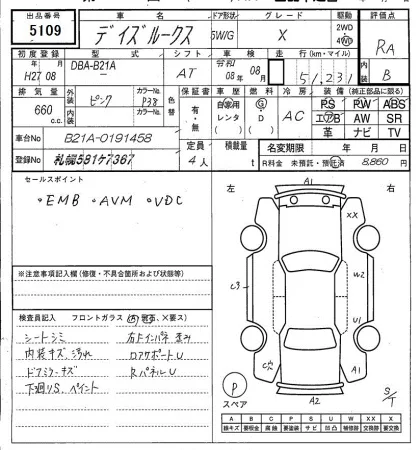 出品番号 車名 ドア形状 グレード 駆動 評価点
5109 デイズルークス 5W/G X 2WD 4WD RA
初度登録 型式 シフト 車検 走行(km・マイル) 内装
H27 年 08 月 DBA-B21A AT 令和 08 年 08 月 51,231 B
排気量 外装 色 カラーNo. 色替 保証書 車歴 燃料 冷房 装備(純正部品に限る)
660 c.c. ピンク P38 有・無 自家用 レンタ G・D AC PS PW ABS
内装色 カラーNo. エアB AW SR
革 ナビ TV
車台No B21A-0191458 定員 積載量 名変期限 年 月 日
登録No 札幌581ケ7367 4人 t R料金 未預託・預託済 8,860円
セールスポイント
・EMB ・AVM ・VDC
※注意事項記入欄(修復・不具合箇所および状態等)
検査員記入 フロントガラス
シートシミ
内装キズ、汚れ
ドアミラーキズ
下廻りS、ペイント
右Fインパネ歪み
ロアサポートU
RパネルU
左 右
A1
XX
C3
W2
U1
A1
A2
P
スペア
S/T
A B C P S U W X XX ×
線キズ 要板金 腐蝕 要塗装 サビ 凹凸 補修跡 交換跡 要交換